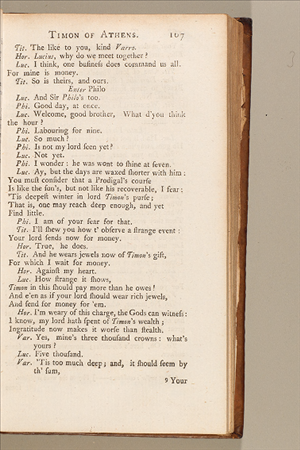 TIMON OF ATHENS. 107
Tit. The like to you, kind Varro.
Hor. Lucius, why do we meet together?
Luc. I think, one buſineſs does command us all.
For mine is money.
Tit. So is theirs, and ours.
Enter Philo
Luc. And Sir Philo's too.
Phi. Good day, at once.
Luc. Welcome, good brother, What d'you think
the hour?
Phi. Labouring for nine.
Luc. So much?
Phi. Is not my lord ſeen yet?
Luc. Not yet.
Phi. I wonder: he was wont to ſhine at ſeven.
Luc. Ay, but the days are waxed ſhorter with him:
You muſt conſider that a Prodigal's courſe
Is like the ſun's, but not like his recoverable, I fear:
'Tis deepeſt winter in lord Timon's purſe;
That is, one may reach deep enough, and yet
Find little.
Phi. I am of your fear for that.
Tit. I'll ſhew you how t' obſerve a ſtrange event:
Your lord ſends now for money.
Hor. True, he does.
Tit. And he wears jewels now of Timon's gift,
For which I wait for money.
Hor. Againſt my heart.
Luc. How ſtrange it ſhows,
Timon in this ſhould pay more than he owes!
And e'en as if your lord ſhould wear rich jewels,
And ſend for money for 'em.
Hor. I'm weary of this charge, the Gods can witneſs:
I know, my lord hath ſpent of Timon's wealth;
Ingratitude now makes it worſe than ſtealth.
Var. Yes, mine's three thouſand crowns: what's
yours?
Luc. Five thouſand.
Var. 'Tis too much deep; and, it ſhould ſeem by
th' ſum,
9 Your